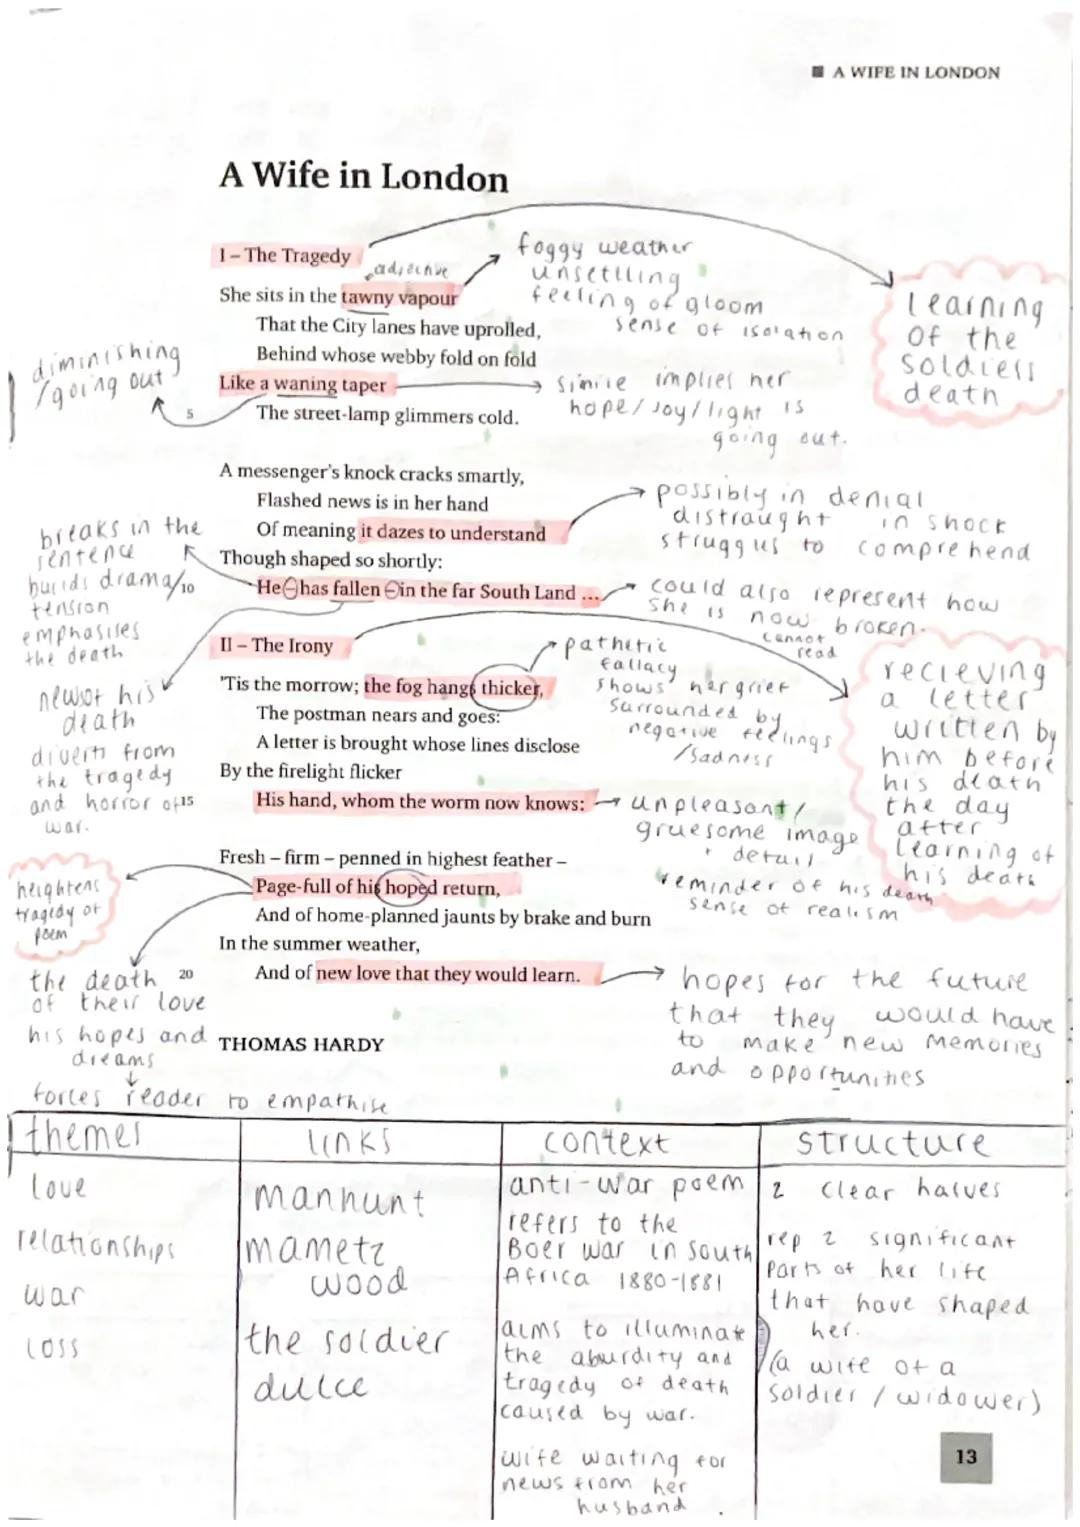 A WIFE IN LONDON
A Wife in London
I – The Tragedy
adjective
She sits in the tawny vapour
That the City lanes have uprolled,
Behind whose webby fold on fold
Like a waning taper
5
The street-lamp glimmers cold.
foggy weather
unsettling
feeling of gloom
sense of isolation
learning
of the
soldiers
death
diminishing
/going out
simile implies her
hope/joy/light is
going out.
A messenger's knock cracks smartly,
Flashed news is in her hand
Of meaning it dazes to understand
Though shaped so shortly:
10
He – has fallen – in the far South Land ...
possibly in denial
distraught in shock
struggles to comprehend
could also represent how
she is now broken.
cannot
read
breaks in the
sentence
builds drama/
tension
emphasises
the death
II – The Irony
'Tis the morrow; the fog hangs thicker,
The postman nears and goes:
A letter is brought whose lines disclose
By the firelight flicker
15
His hand, whom the worm now knows:
pathetic
fallacy
shows her grief
surrounded by
negative feelings
/sadness
recieving
a letter
written by
him before
his death
the day
after
learning of
his death
news of his
death
diverts from
the tragedy
and horror of
war.
unpleasant/
gruesome image
+ detail
reminder of his death
sense of realism
Fresh – firm – penned in highest feather –
Page-full of his hoped return,
And of home-planned jaunts by brake and burn
In the summer weather,
20
And of new love that they would learn.
heightens
tragedy of
poem
the death
of their love
his hopes and
dreams
forces reader to empathise
hopes for the future
that they would have
to make new memories
and opportunities
THOMAS HARDY
themes
love
relationships
war
loss
links
manhunt
mametz
wood
the soldier
dulce
context
anti-war poem
refers to the
Boer war in South
Africa 1880-1881
aims to illuminate
the aburdity and
tragedy of death
caused by war.
wife waiting for
news from her
husband.
structure
2 clear halves
rep 2 significant
parts of her life
that have shaped
her.
(a wife of a
soldier / widower)
13